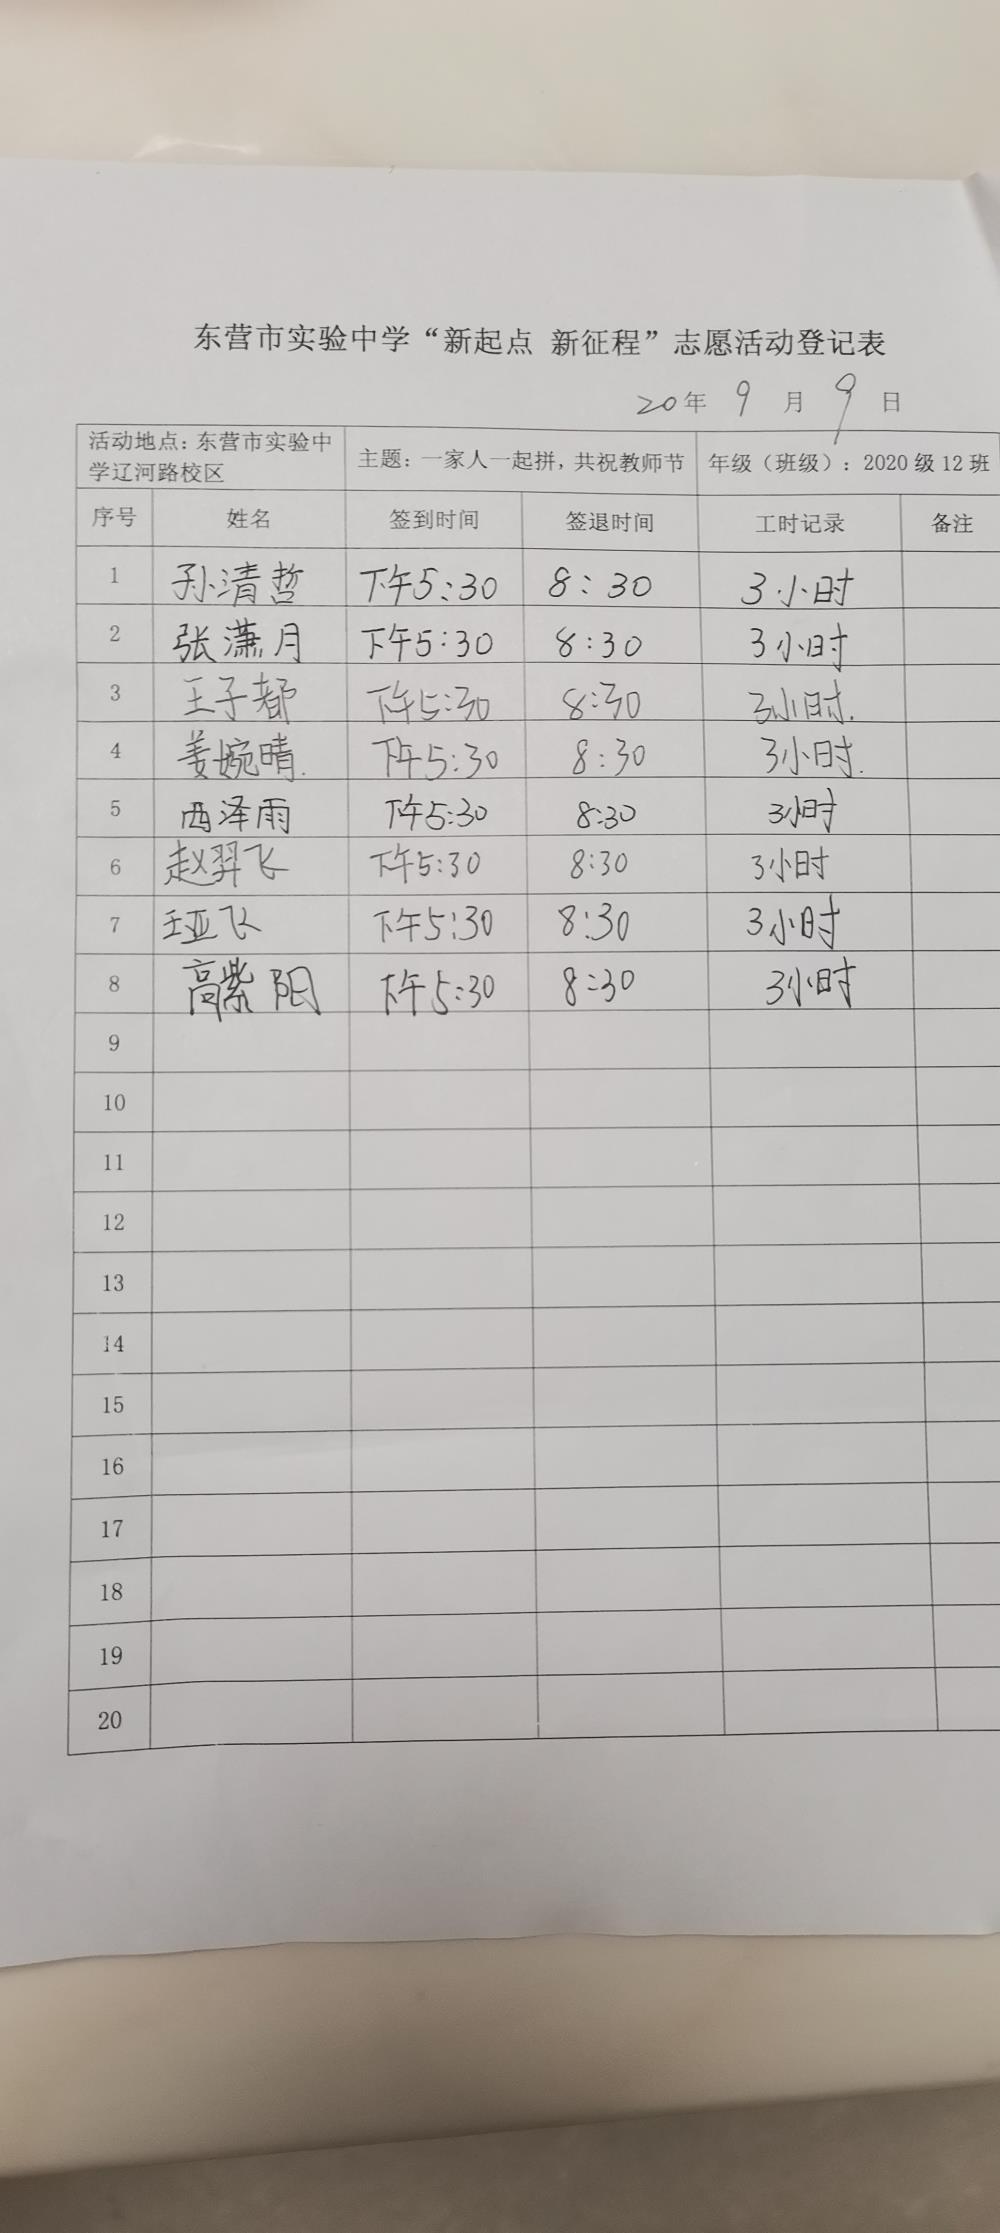 东营市实验中学“新起点 新征程”志愿活动登记表
20年 9 月 9 日
活动地点：东营市实验中学辽河路校区 主题：一家人一起拼，共祝教师节 年级（班级）：2020级12班
序号 姓名 签到时间 签退时间 工时记录 备注
1 孙清哲 下午5:30 8:30 3小时
2 张潇月 下午5:30 8:30 3小时
3 王子都 下午5:30 8:30 3小时.
4 姜婉晴. 下午5:30 8:30 3小时.
5 西泽雨 下午5:30 8:30 3小时
6 赵羿飞 下午5:30 8:30 3小时
7 王亚飞 下午5:30 8:30 3小时
8 高紫阳 下午5:30 8:30 3小时
9
10
11
12
13
14
15
16
17
18
19
20